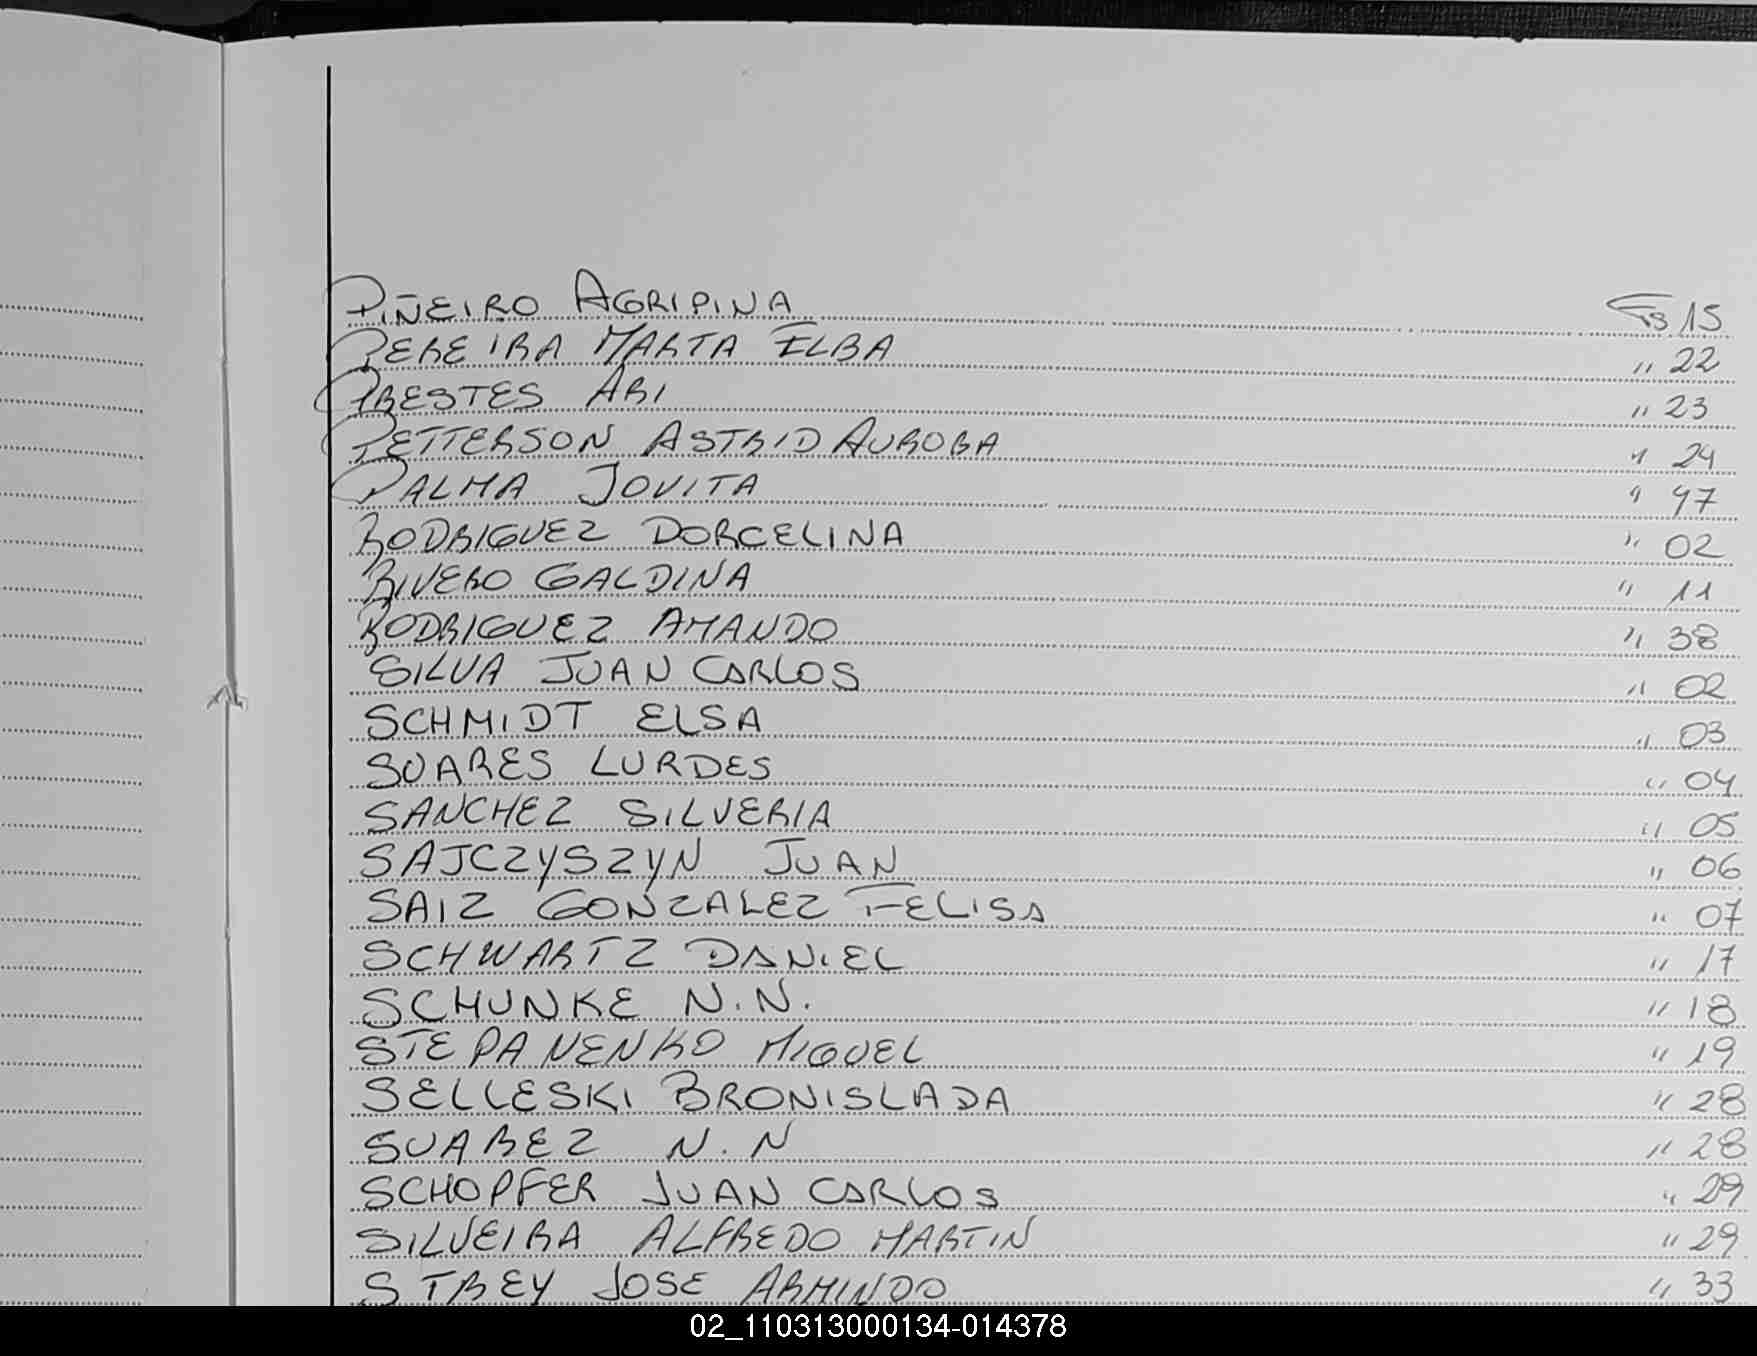 PIÑEIRO AGRIPINA Fs 15
PEREIRA MARTA ELBA " 22
PRESTES ARI " 23
PETTERSON ASTRID AURORA " 24
PALMA JOVITA " 47
RODRIGUEZ DORCELINA " 02
RIVERO GALDINA " 11
RODRIGUEZ AMANDO " 38
SILVA JUAN CARLOS " 02
SCHMIDT ELSA " 03
SUARES LURDES " 04
SANCHEZ SILVERIA " 05
SAJCZYSZYN JUAN " 06
SAIZ GONZALEZ FELISA " 07
SCHWARTZ DANIEL " 17
SCHUNKE N.N. " 18
STEPANENKO MIGUEL " 19
SELLESKI BRONISLADA " 28
SUAREZ N.N " 28
SCHOPFER JUAN CARLOS " 29
SILVEIRA ALFREDO MARTIN " 29
STREY JOSE ARMINDO " 33
02_110313000134-014378